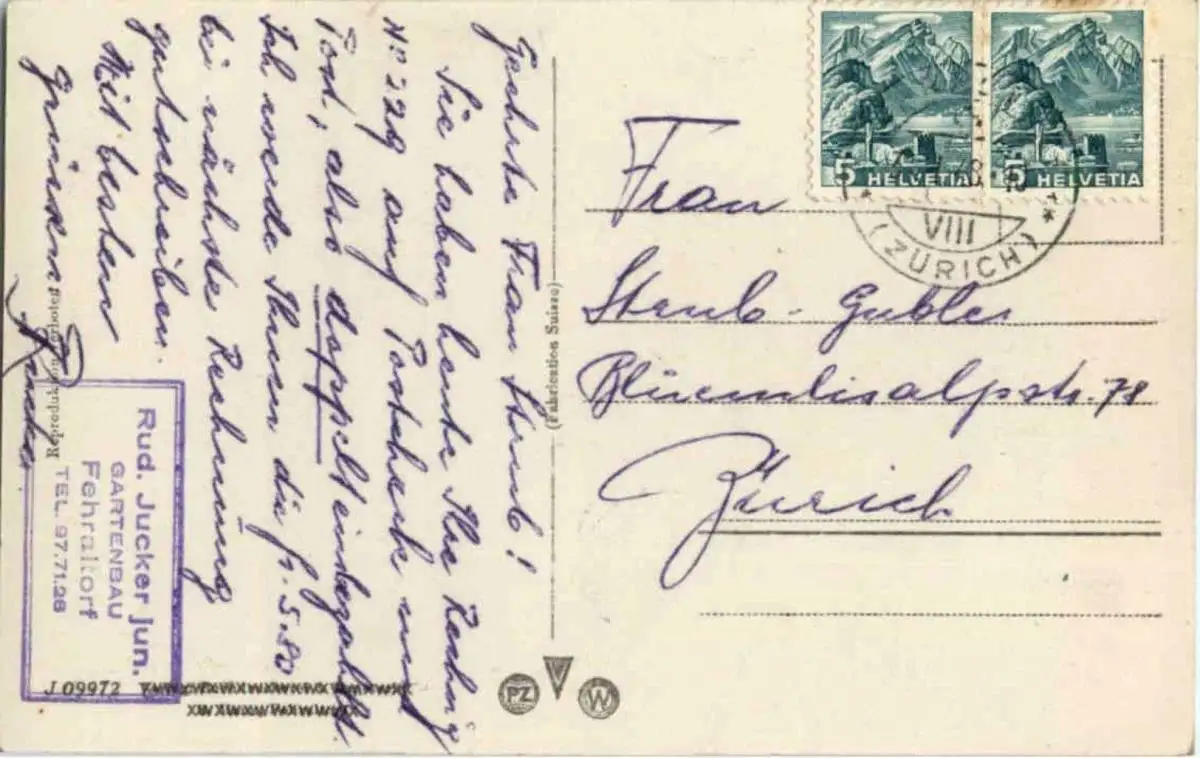 Geehrte Frau Streub!
Sie haben heute Ihre Rechnig
No 229 auf Postcheck und
Post, also doppelt einbezahlt.
Ich werde Ihnen die fr. 5.80
bei nächster Rechnung
gutschreiben.
Mit besten
Grüssen
R. Jucker
Rud. Jucker jun.
GARTENBAU
Fehraltorf
TEL. 97.71.26
Reproduktion verboten
J 09972
(Fabrication Suisse)
PZ
W
5 HELVETIA
5 HELVETIA
VIII
(ZÜRICH)
Frau
Streub-Gubler
Blüemlisalpstr. 78
Zürich